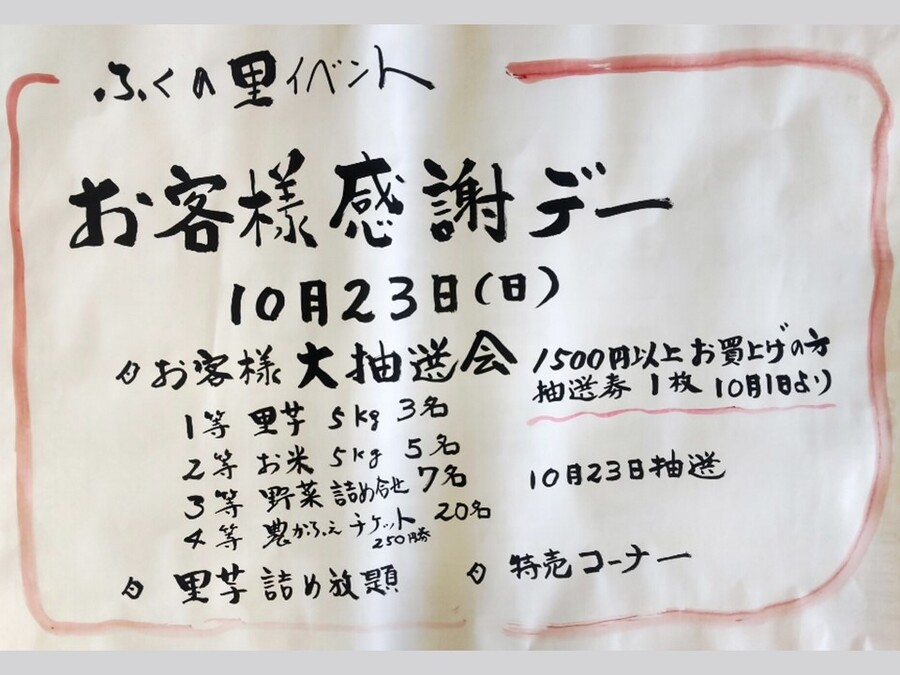 ふくの里イベント
お客様感謝デー
10月23日(日)
お客様大抽選会
1500円以上お買上げの方
抽選券 1枚 10月1日より
1等 里芋 5kg 3名
2等 お米 5kg 5名
3等 野菜詰め合せ 7名
4等 農かふぇチケット 20名
250円券
10月23日抽選
里芋詰め放題
特売コーナー